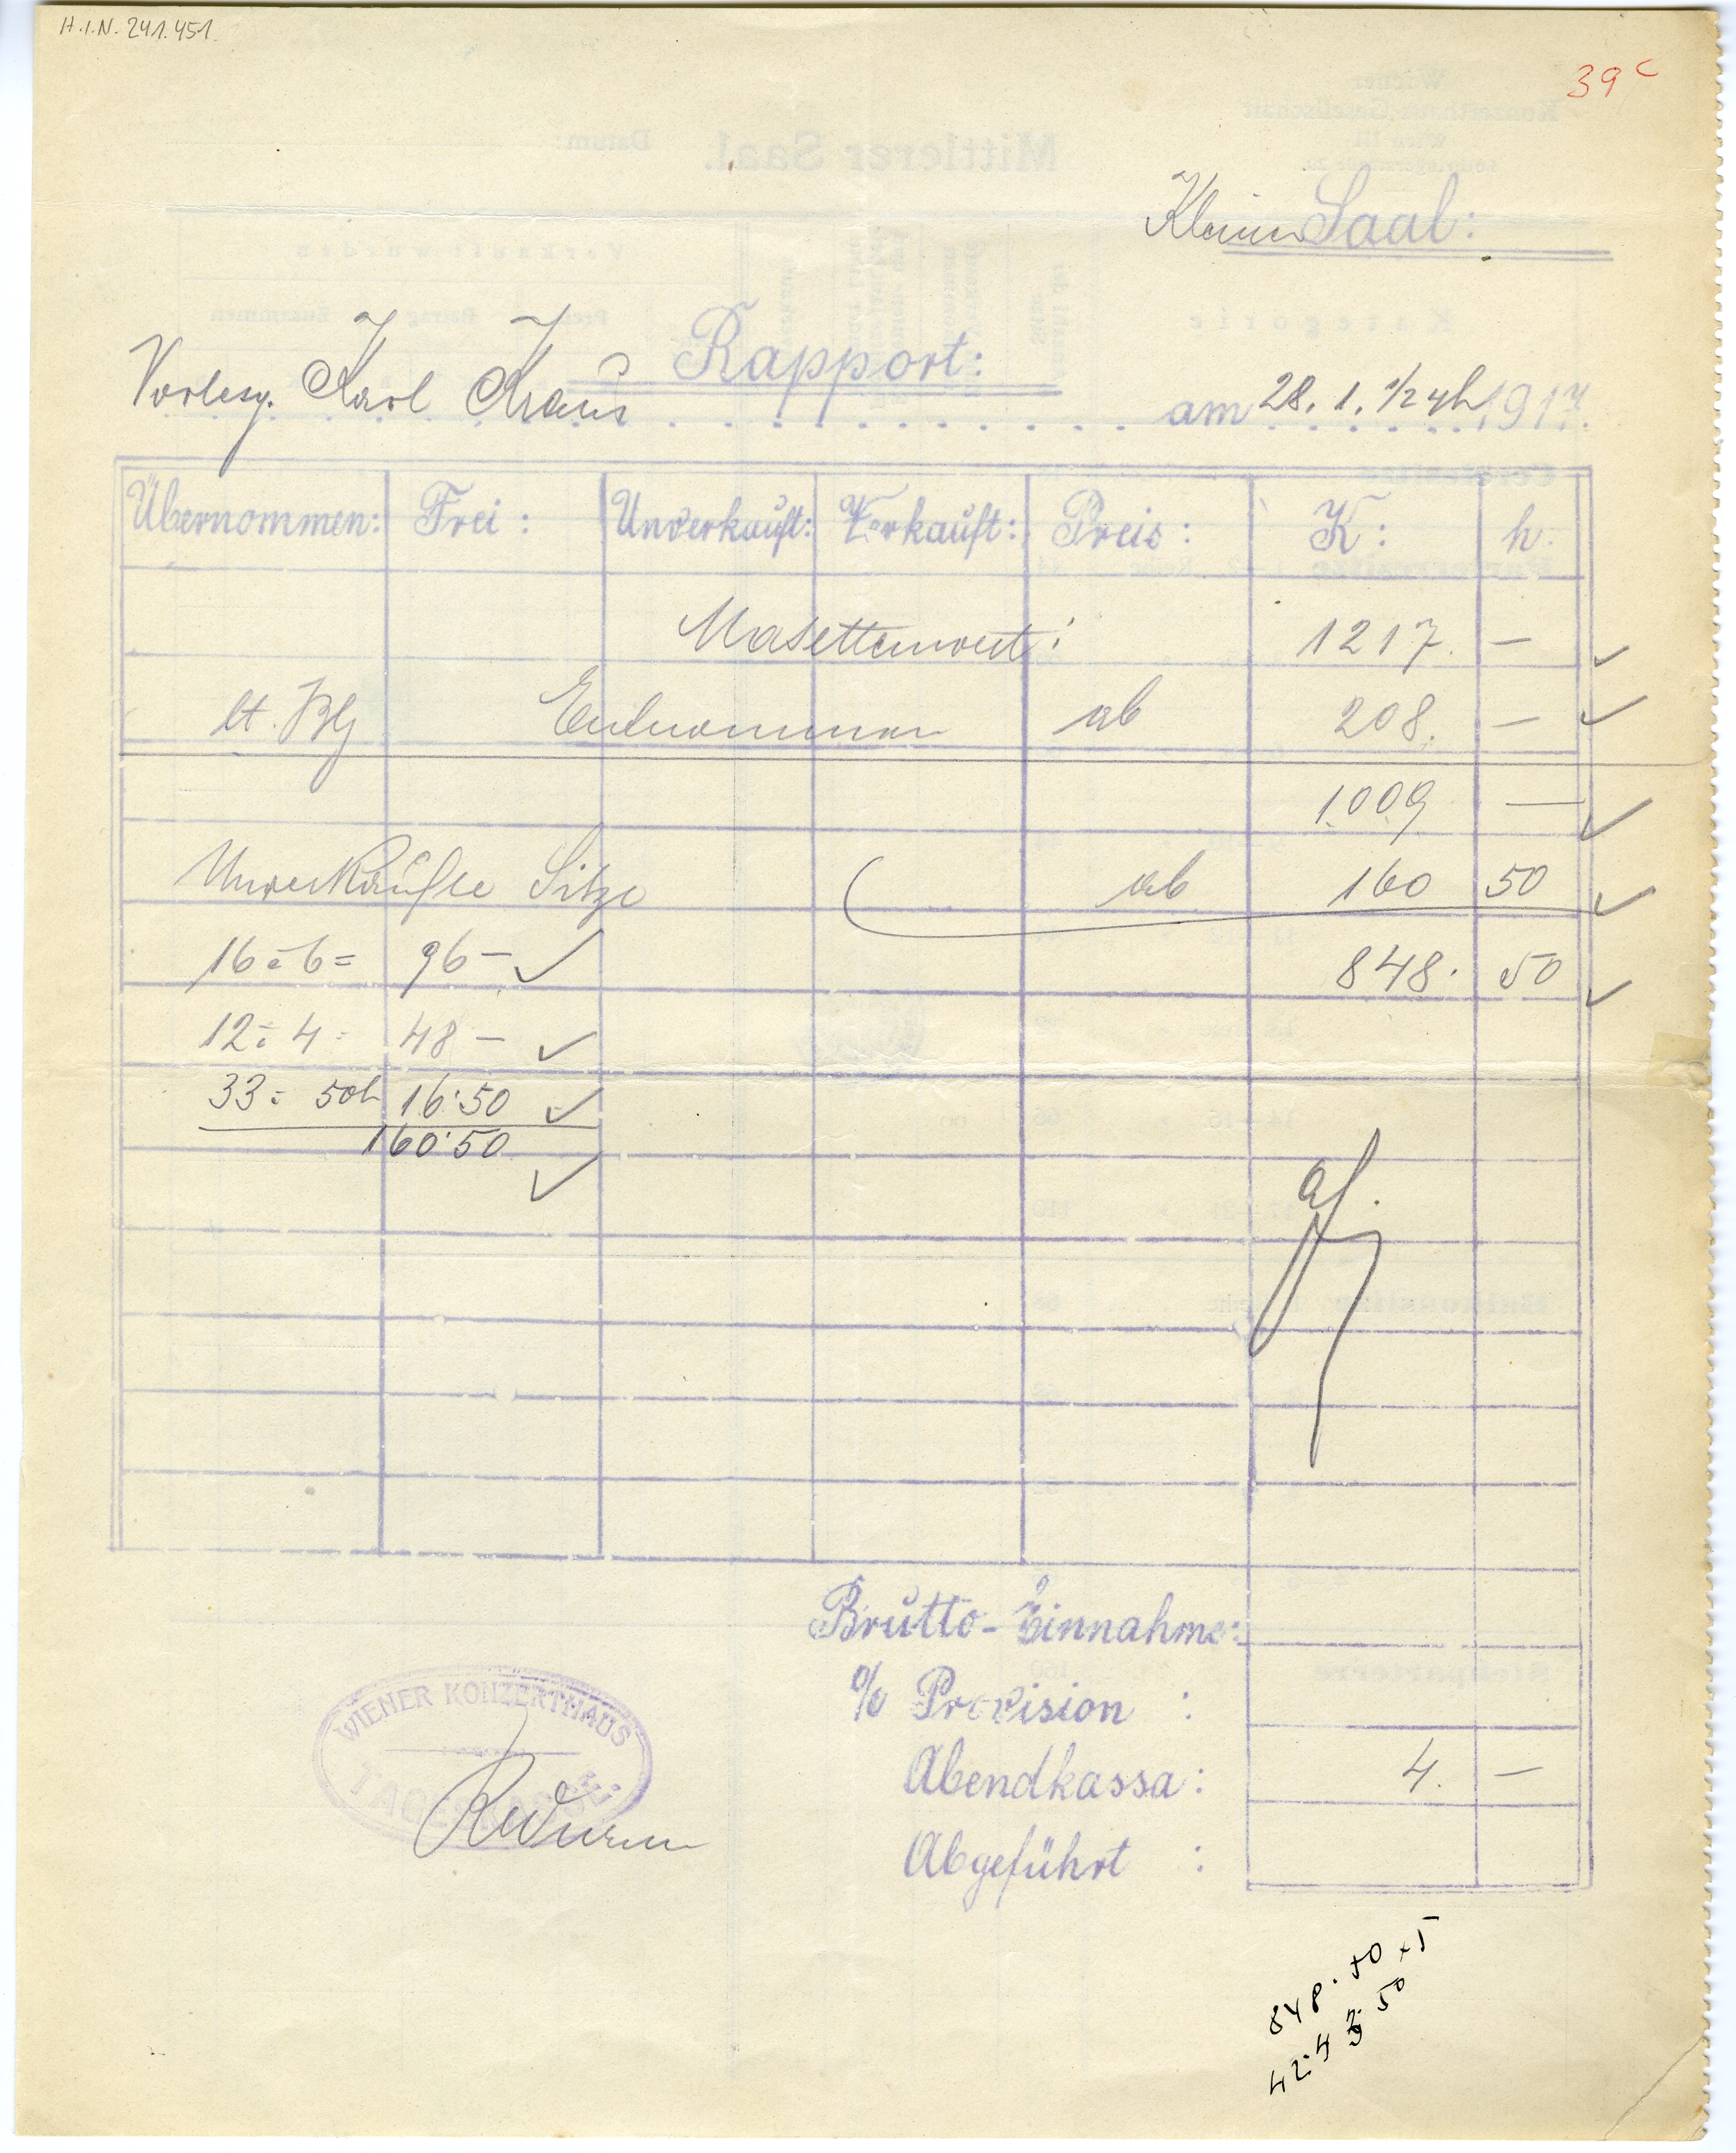 H.I.N. 241.451.
39c
Kleiner Saal:
Rapport:
Vorlesg. Karl Kraus am 28. 1. 1/2 4h 1917.
Übernommen: Frei: Unverkauft: Verkauft: Preis: K: h:
Masettenwert: 1217. —
lt. Blg Entnommen ab 208. —
1009 —
Unverkaufte Sitze ab 160 50
16 à 6 = 96 — 848. 50
12 à 4 = 48 —
33 à 50h 16.50
160.50
Brutto-Einnahme:
% Provision :
Abendkassa: 4. —
Abgeführt :
WIENER KONZERTHAUS
TAGESKASSE
848.50 x 5